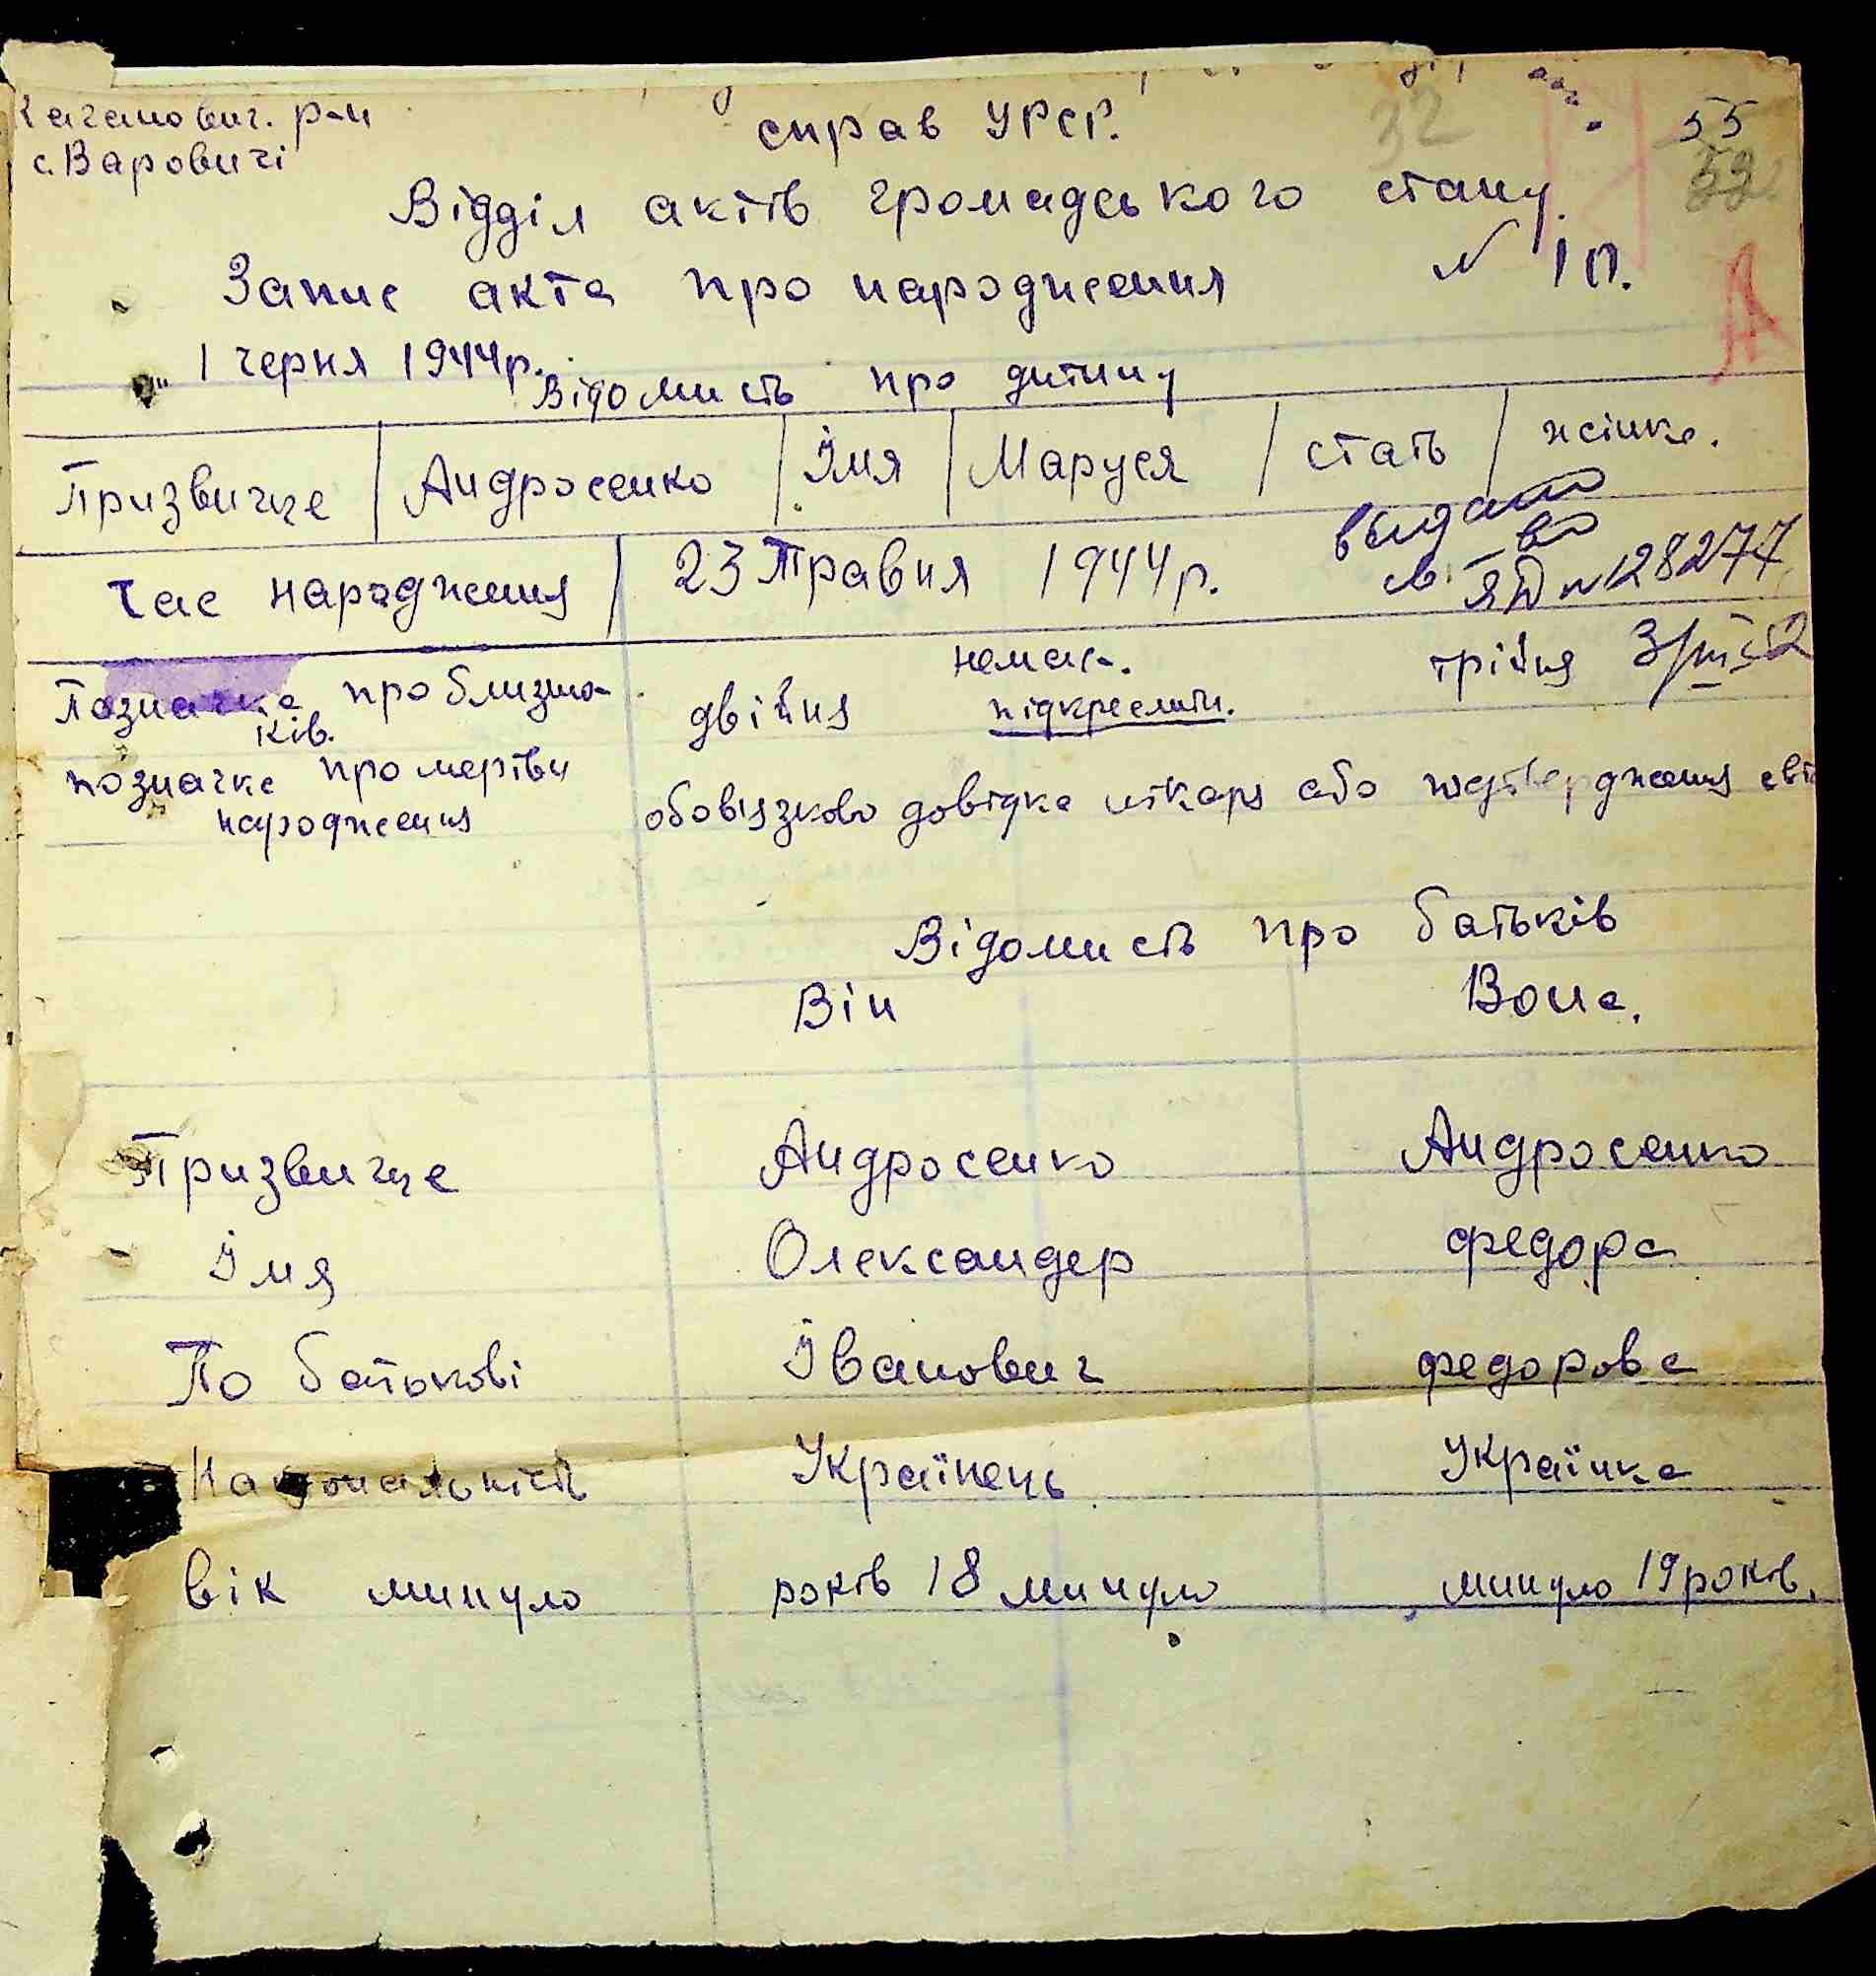 Каганович. р-н
с. Варовичі
справ УРСР.
32
55
Відділ актів громадського стану.
Запис акта про народження № 10.
1 черня 1944р.
Відомисть про дитину
А
Призвичце Андросенко Імя Маруся стать жінка.
Час народження 23 Травня 1944 р.
выдано
св-во
ЯД № 128277
3/III-52
Позначка про близню-
ків.
двійня немає. трійня
підкреслити.
позначка про мертви
народження
обовізково довідка лікаря або підтвердження сві
Відомисть про батьків
Він Вона.
Призвичце Андросенко Андросенко
Імя Олександер Федора
По батькові Іванович Федорова
Національність Українець Українка
вік минуло років 18 минуло минуло 19 років.